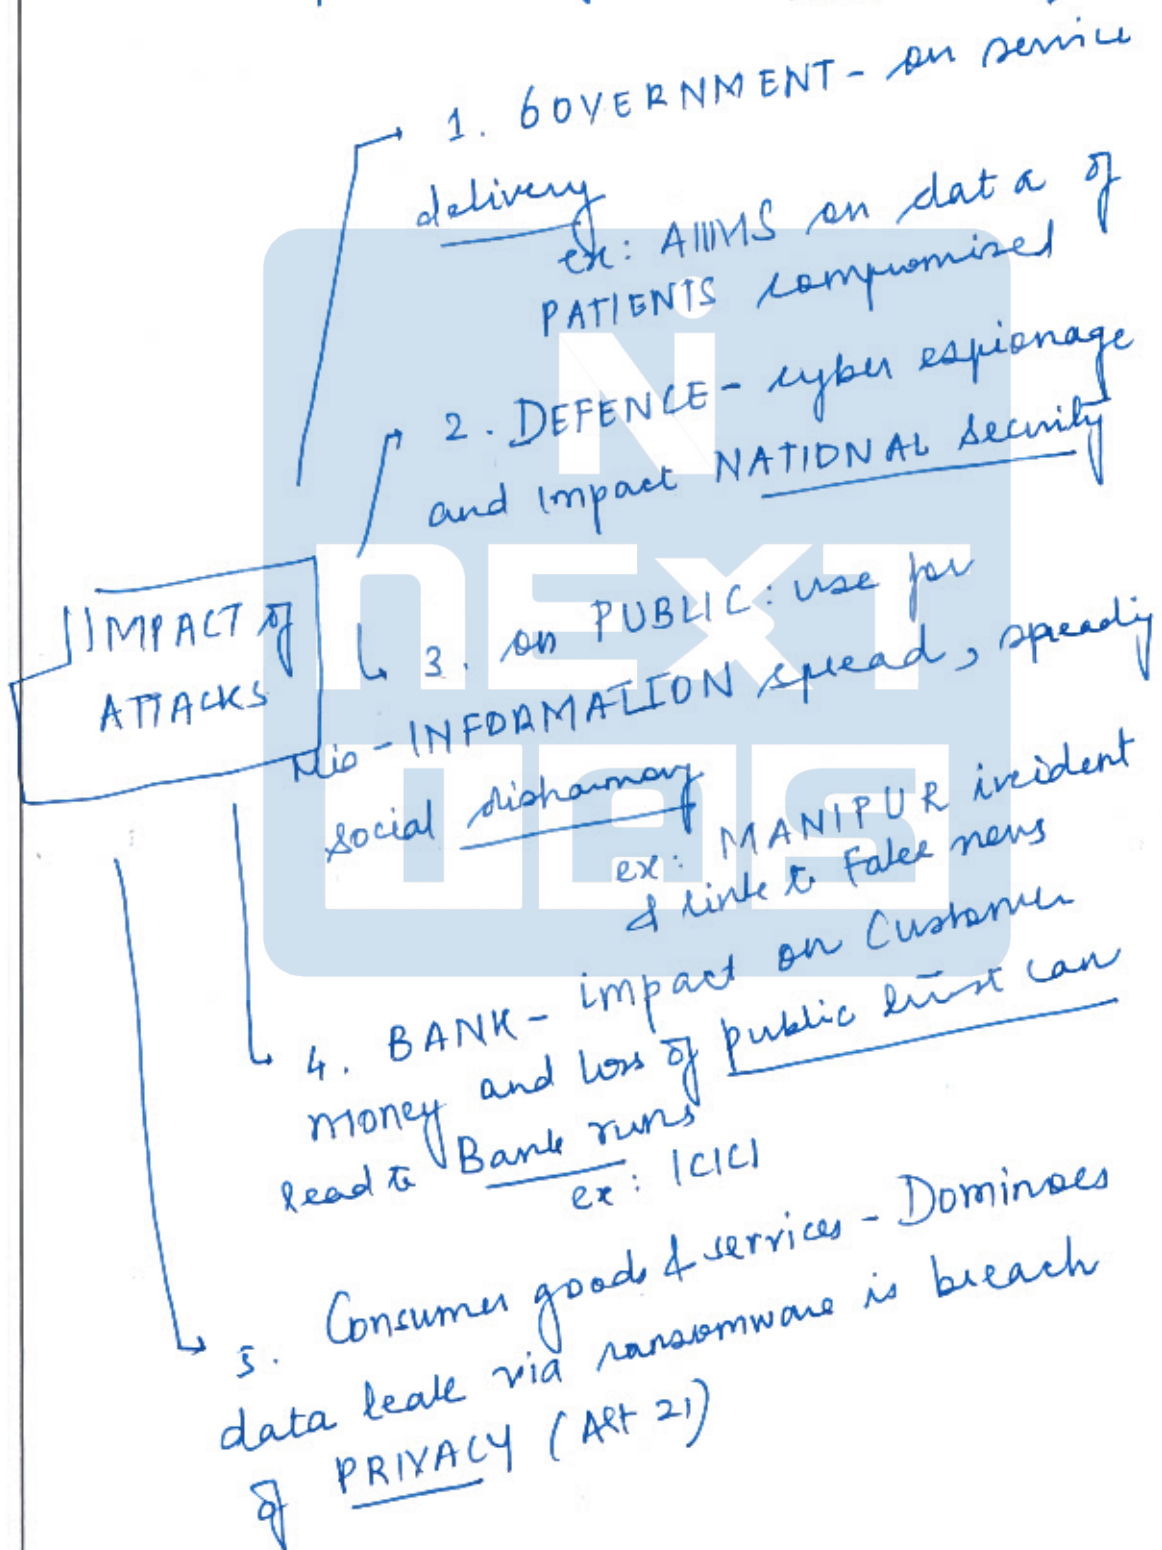 1. GOVERNMENT - on service
delivery
ex: AIIMS on data of
PATIENTS compromised
2. DEFENCE - cyber espionage
and impact NATIONAL Security
IMPACT of
ATTACKS
3. on PUBLIC: use for
Mis-INFORMATION spread, spreading
social disharmony
ex: MANIPUR incident
& link to Fake news
4. BANK - impact on Customer
money and loss of public trust can
lead to Bank runs
ex: ICICI
5. Consumer goods & services - Dominoes
data leak via ransomware is breach
of PRIVACY (Art 21)
NEXT
IAS